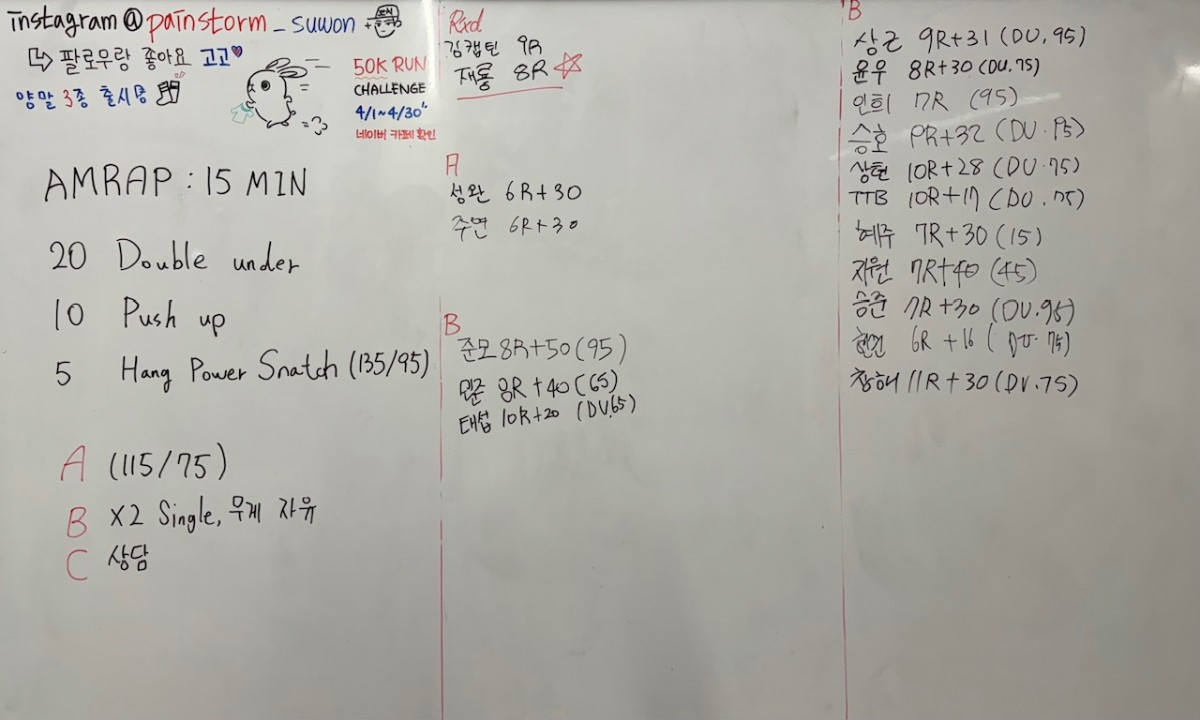 instagram@painstorm_suwon
팔로우랑 좋아요 고고
양말 3종 출시중
50K RUN
CHALLENGE
4/1~4/30
네이버 카페 확인
AMRAP : 15 MIN
20 Double under
10 Push up
5 Hang Power Snatch (135/95)
A (115/75)
B X2 Single, 무게 자유
C 상담
Rxd
김캡틴 9R
재룡 8R
A
성완 6R+30
주연 6R+30
B
준모 8R+50 (95)
민준 8R+40 (65)
태섭 10R+20 (DU.65)
B
상근 9R+31 (DU.95)
윤우 8R+30 (DU.75)
인희 7R (95)
승호 9R+32 (DU.95)
상헌 10R+28 (DU.75)
TTB 10R+17 (DU.75)
혜주 7R+30 (15)
지원 7R+40 (45)
승준 7R+30 (DU.95)
6R+16 (DU.75)
창해 11R+30 (DU.75)